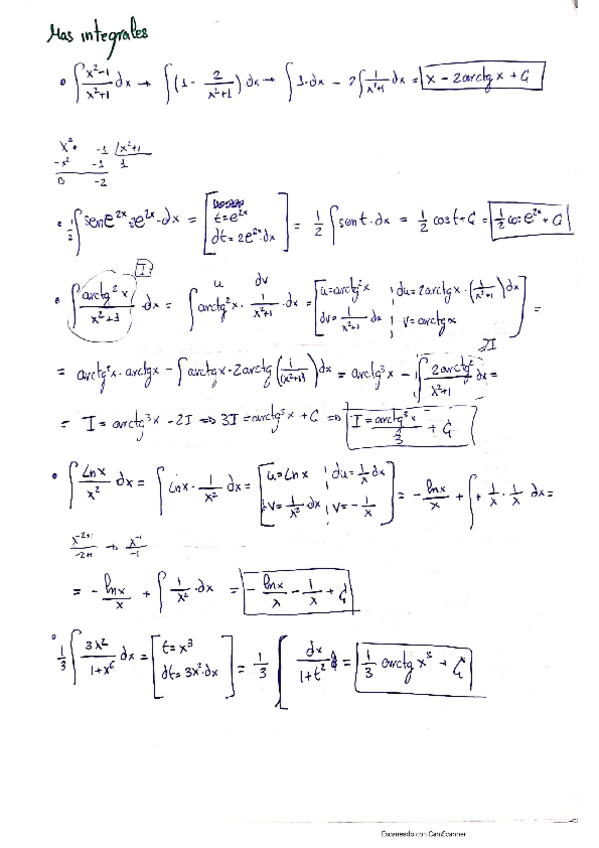 Mas integrales
∫ x²-1/x²+1 dx → ∫(1 - 2/x²+1) dx → ∫1·dx - 2∫ 1/x²+1 dx = x - 2arctg x + C
x² -1 |x²+1
-x² -1 1
0 -2
1/2 ∫ sen e^2x · 2e^2x · dx = [t=e^2x dt=2e^2x·dx] = 1/2 ∫ sen t · dx = 1/2 cos t + C = 1/2 cos e^2x + C
I
∫ arctg² x / x²+3 dx = ∫ arctg² x · 1/x²+1 · dx = [u=arctg² x ¦ du=2arctg x·(1/x²+1)dx dv=1/x²+1 dx ¦ v=arctg x] =
u dv
2I
= arctg² x · arctg x - ∫ arctg x · 2arctg (1/(x²+1)) dx = arctg³ x - ∫ 2arctg²/x²+1 dx =
= I = arctg³ x - 2I ⇒ 3I = arctg³ x + C ⇒ I = arctg³ x/3 + C
∫ Ln x/x² dx = ∫ Ln x · 1/x² · dx = [u=Ln x ¦ du=1/x dx v=1/x² dx ¦ v=-1/x] = -ln x/x + ∫ + 1/x · 1/x dx =
x^-2+1/-2+1 → x^-1/-1
= - ln x/x + ∫ 1/x² · dx = - ln x/x - 1/x + C
1/3 ∫ 3x²/1+x⁶ dx = [t=x³ dt=3x²·dx] = 1/3 ∫ dx/1+t² = 1/3 arctg x³ + C
Escaneado con CamScanner